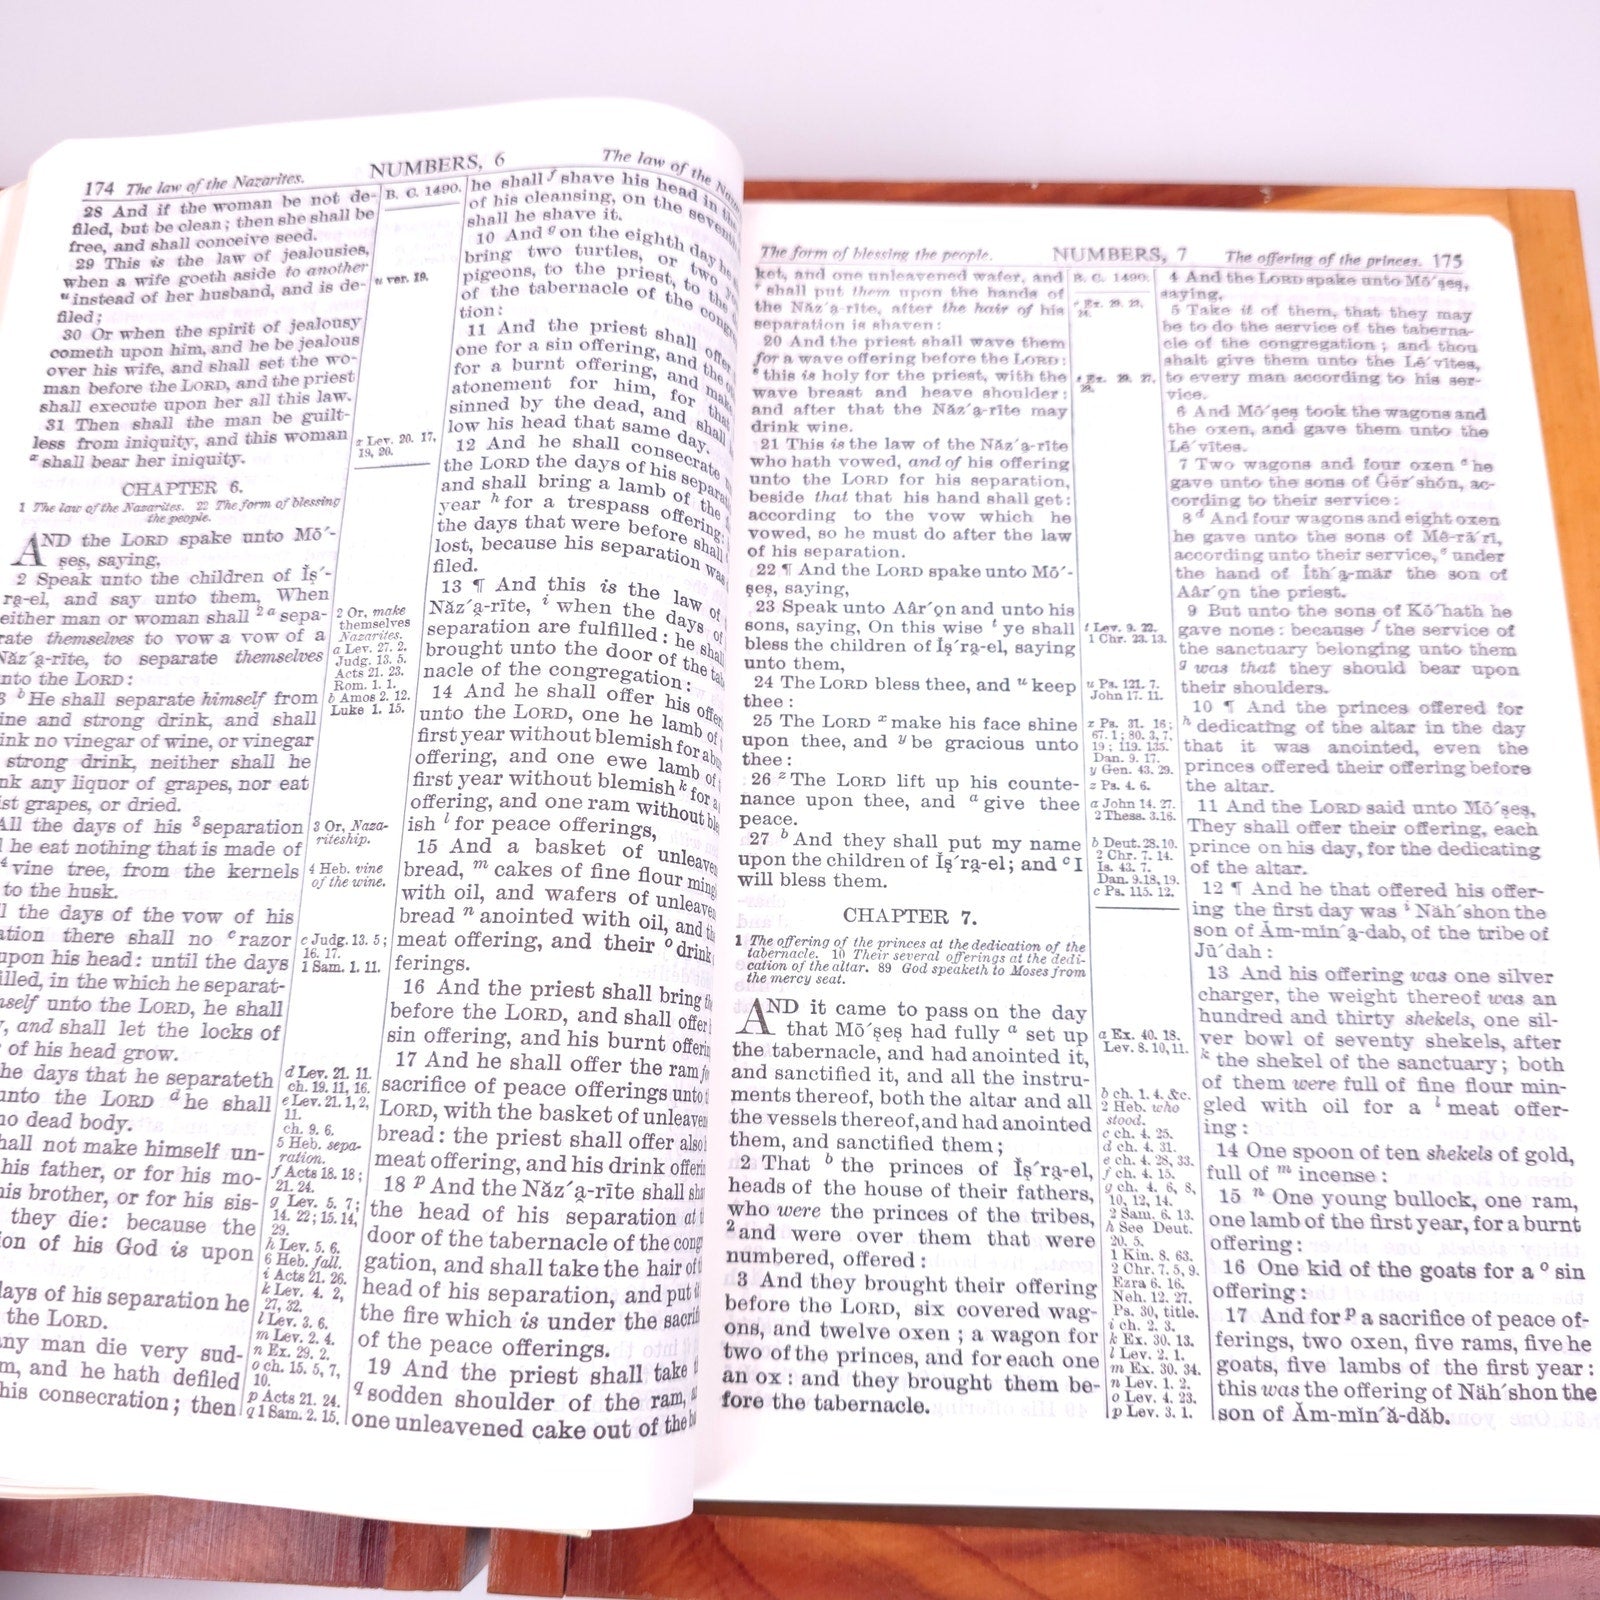 174 The law of the Nazarites.
NUMBERS, 6
The law of the
28 And if the woman be not de-
filed, but be clean; then she shall be
free, and shall conceive seed.
29 This is the law of jealousies,
when a wife goeth aside to another
u instead of her husband, and is de-
filed;
30 Or when the spirit of jealousy
cometh upon him, and he be jealous
over his wife, and shall set the wo-
man before the LORD, and the priest
shall execute upon her all this law.
31 Then shall the man be guilt-
less from iniquity, and this woman
x shall bear her iniquity.
CHAPTER 6.
1 The law of the Nazarites. 22 The form of blessing
the people.
AND the LORD spake unto Mō´-
ṣeṣ, saying,
2 Speak unto the children of Ĭṣ´-
rạ-el, and say unto them, When
either man or woman shall 2 a sepa-
rate themselves to vow a vow of a
Năz´ạ-rīte, to separate themselves
nto the LORD:
3 b He shall separate himself from
ine and strong drink, and shall
ink no vinegar of wine, or vinegar
strong drink, neither shall he
nk any liquor of grapes, nor eat
ist grapes, or dried.
All the days of his 3 separation
l he eat nothing that is made of
4 vine tree, from the kernels
to the husk.
l the days of the vow of his
ation there shall no c razor
upon his head: until the days
illed, in the which he separat-
mself unto the LORD, he shall
, and shall let the locks of
of his head grow.
he days that he separateth
unto the LORD d he shall
no dead body.
hall not make himself un-
his father, or for his mo-
his brother, or for his sis-
they die: because the
on of his God is upon
days of his separation he
the LORD.
ny man die very sud-
m, and he hath defiled
his consecration; then
B. C. 1490.
u ver. 19.
x Lev. 20. 17,
19, 20.
2 Or, make
themselves
Nazarites.
a Lev. 27. 2.
Judg. 13. 5.
Acts 21. 23.
Rom. 1. 1.
b Amos 2. 12.
Luke 1. 15.
3 Or, Naza-
riteship.
4 Heb. vine
of the wine.
c Judg. 13. 5;
16. 17.
1 Sam. 1. 11.
d Lev. 21. 11.
ch. 19. 11, 16.
e Lev. 21. 1, 2,
11.
ch. 9. 6.
5 Heb. sepa-
ration.
f Acts 18. 18;
21. 24.
g Lev. 5. 7;
14. 22; 15. 14,
29.
h Lev. 5. 6.
6 Heb. fall.
i Acts 21. 26.
k Lev. 4. 2,
27, 32.
l Lev. 3. 6.
m Lev. 2. 4.
n Ex. 29. 2.
o ch. 15. 5, 7,
10.
p Acts 21. 24.
q 1 Sam. 2. 15.
he shall f shave his head in the
of his cleansing, on the seventh
shall he shave it.
10 And g on the eighth day he
bring two turtles, or two
pigeons, to the priest, to the
of the tabernacle of the congre
tion:
11 And the priest shall offer
one for a sin offering, and the
for a burnt offering, and make
atonement for him, for that
sinned by the dead, and shall
low his head that same day.
12 And he shall consecrate
the LORD the days of his separa
and shall bring a lamb of the
year h for a trespass offering:
the days that were before shall
lost, because his separation was
filed.
13 ¶ And this is the law of
Năz´ạ-rīte, i when the days of
separation are fulfilled: he shall
brought unto the door of the tab
nacle of the congregation:
14 And he shall offer his offer
unto the LORD, one he lamb of
first year without blemish for a
offering, and one ewe lamb of
first year without blemish k for a
offering, and one ram without ble
ish l for peace offerings,
15 And a basket of unleaven
bread, m cakes of fine flour ming
with oil, and wafers of unleaven
bread n anointed with oil, and th
meat offering, and their o drink
ferings.
16 And the priest shall bring the
before the LORD, and shall offer
sin offering, and his burnt offerin
17 And he shall offer the ram fo
sacrifice of peace offerings unto
LORD, with the basket of unleaven
bread: the priest shall offer also
meat offering, and his drink offerin
18 p And the Năz´ạ-rīte shall sha
the head of his separation at
door of the tabernacle of the cong
gation, and shall take the hair of
head of his separation, and put
the fire which is under the sacrif
of the peace offerings.
19 And the priest shall take
q sodden shoulder of the ram,
one unleavened cake out of the
The form of blessing the people.
NUMBERS, 7
The offering of the princes. 175
ket, and one unleavened wafer, and
r shall put them upon the hands of
the Năz´ạ-rīte, after the hair of his
separation is shaven:
20 And the priest shall wave them
for a wave offering before the LORD:
s this is holy for the priest, with the
wave breast and heave shoulder:
and after that the Năz´ạ-rīte may
drink wine.
21 This is the law of the Năz´ạ-rīte
who hath vowed, and of his offering
unto the LORD for his separation,
beside that that his hand shall get:
according to the vow which he
vowed, so he must do after the law
of his separation.
22 ¶ And the LORD spake unto Mō´-
ṣeṣ, saying,
23 Speak unto Aâr´ọn and unto his
sons, saying, On this wise t ye shall
bless the children of Ĭṣ´rạ-el, saying
unto them,
24 The LORD bless thee, and u keep
thee:
25 The LORD x make his face shine
upon thee, and y be gracious unto
thee:
26 z The LORD lift up his counte-
nance upon thee, and a give thee
peace.
27 b And they shall put my name
upon the children of Ĭṣ´rạ-el; and c I
will bless them.
CHAPTER 7.
1 The offering of the princes at the dedication of the
tabernacle. 10 Their several offerings at the dedi-
cation of the altar. 89 God speaketh to Moses from
the mercy seat.
AND it came to pass on the day
that Mō´ṣeṣ had fully a set up
the tabernacle, and had anointed it,
and sanctified it, and all the instru-
ments thereof, both the altar and all
the vessels thereof, and had anointed
them, and sanctified them;
2 That b the princes of Ĭṣ´rạ-el,
heads of the house of their fathers,
who were the princes of the tribes,
2 and were over them that were
numbered, offered:
3 And they brought their offering
before the LORD, six covered wag-
ons, and twelve oxen; a wagon for
two of the princes, and for each one
an ox: and they brought them be-
fore the tabernacle.
B. C. 1490.
r Ex. 29. 23,
24.
s Ex. 29. 27,
28.
t Lev. 9. 22.
1 Chr. 23. 13.
u Ps. 121. 7.
John 17. 11.
x Ps. 31. 16;
67. 1; 80. 3, 7,
19; 119. 135.
Dan. 9. 17.
y Gen. 43. 29.
z Ps. 4. 6.
a John 14. 27.
2 Thess. 3. 16.
b Deut. 28. 10.
2 Chr. 7. 14.
Is. 43. 7.
Dan. 9. 18, 19.
c Ps. 115. 12.
a Ex. 40. 18.
Lev. 8. 10, 11.
b ch. 1. 4, &c.
2 Heb. who
stood.
c ch. 4. 25.
d ch. 4. 31.
e ch. 4. 28, 33.
f ch. 4. 15.
g ch. 4. 6, 8,
10, 12, 14.
2 Sam. 6. 13.
h See Deut.
20. 5.
1 Kin. 8. 63.
2 Chr. 7. 5, 9.
Ezra 6. 16.
Neh. 12. 27.
Ps. 30, title.
i ch. 2. 3.
k Ex. 30. 13.
l Lev. 2. 1.
m Ex. 30. 34.
n Lev. 1. 2.
o Lev. 4. 23.
p Lev. 3. 1.
4 And the LORD spake unto Mō´ṣeṣ,
saying,
5 Take it of them, that they may
be to do the service of the taberna-
cle of the congregation; and thou
shalt give them unto the Lē´vītes,
to every man according to his ser-
vice.
6 And Mō´ṣeṣ took the wagons and
the oxen, and gave them unto the
Lē´vītes.
7 Two wagons and four oxen c he
gave unto the sons of Gẽr´shŏn, ac-
cording to their service:
8 d And four wagons and eight oxen
he gave unto the sons of Mē-rā´rī,
according unto their service, e under
the hand of Ĭth´ạ-mär the son of
Aâr´ọn the priest.
9 But unto the sons of Kō´hath he
gave none: because f the service of
the sanctuary belonging unto them
g was that they should bear upon
their shoulders.
10 ¶ And the princes offered for
h dedicating of the altar in the day
that it was anointed, even the
princes offered their offering before
the altar.
11 And the LORD said unto Mō´ṣeṣ,
They shall offer their offering, each
prince on his day, for the dedicating
of the altar.
12 ¶ And he that offered his offer-
ing the first day was i Näh´shon the
son of Ăm-mĭn´ạ-dab, of the tribe of
Jū´dah:
13 And his offering was one silver
charger, the weight thereof was an
hundred and thirty shekels, one sil-
ver bowl of seventy shekels, after
k the shekel of the sanctuary; both
of them were full of fine flour min-
gled with oil for a l meat offer-
ing:
14 One spoon of ten shekels of gold,
full of m incense:
15 n One young bullock, one ram,
one lamb of the first year, for a burnt
offering:
16 One kid of the goats for a o sin
offering:
17 And for p a sacrifice of peace of-
ferings, two oxen, five rams, five he
goats, five lambs of the first year:
this was the offering of Näh´shon the
son of Ăm-mĭn´ă-dăb.